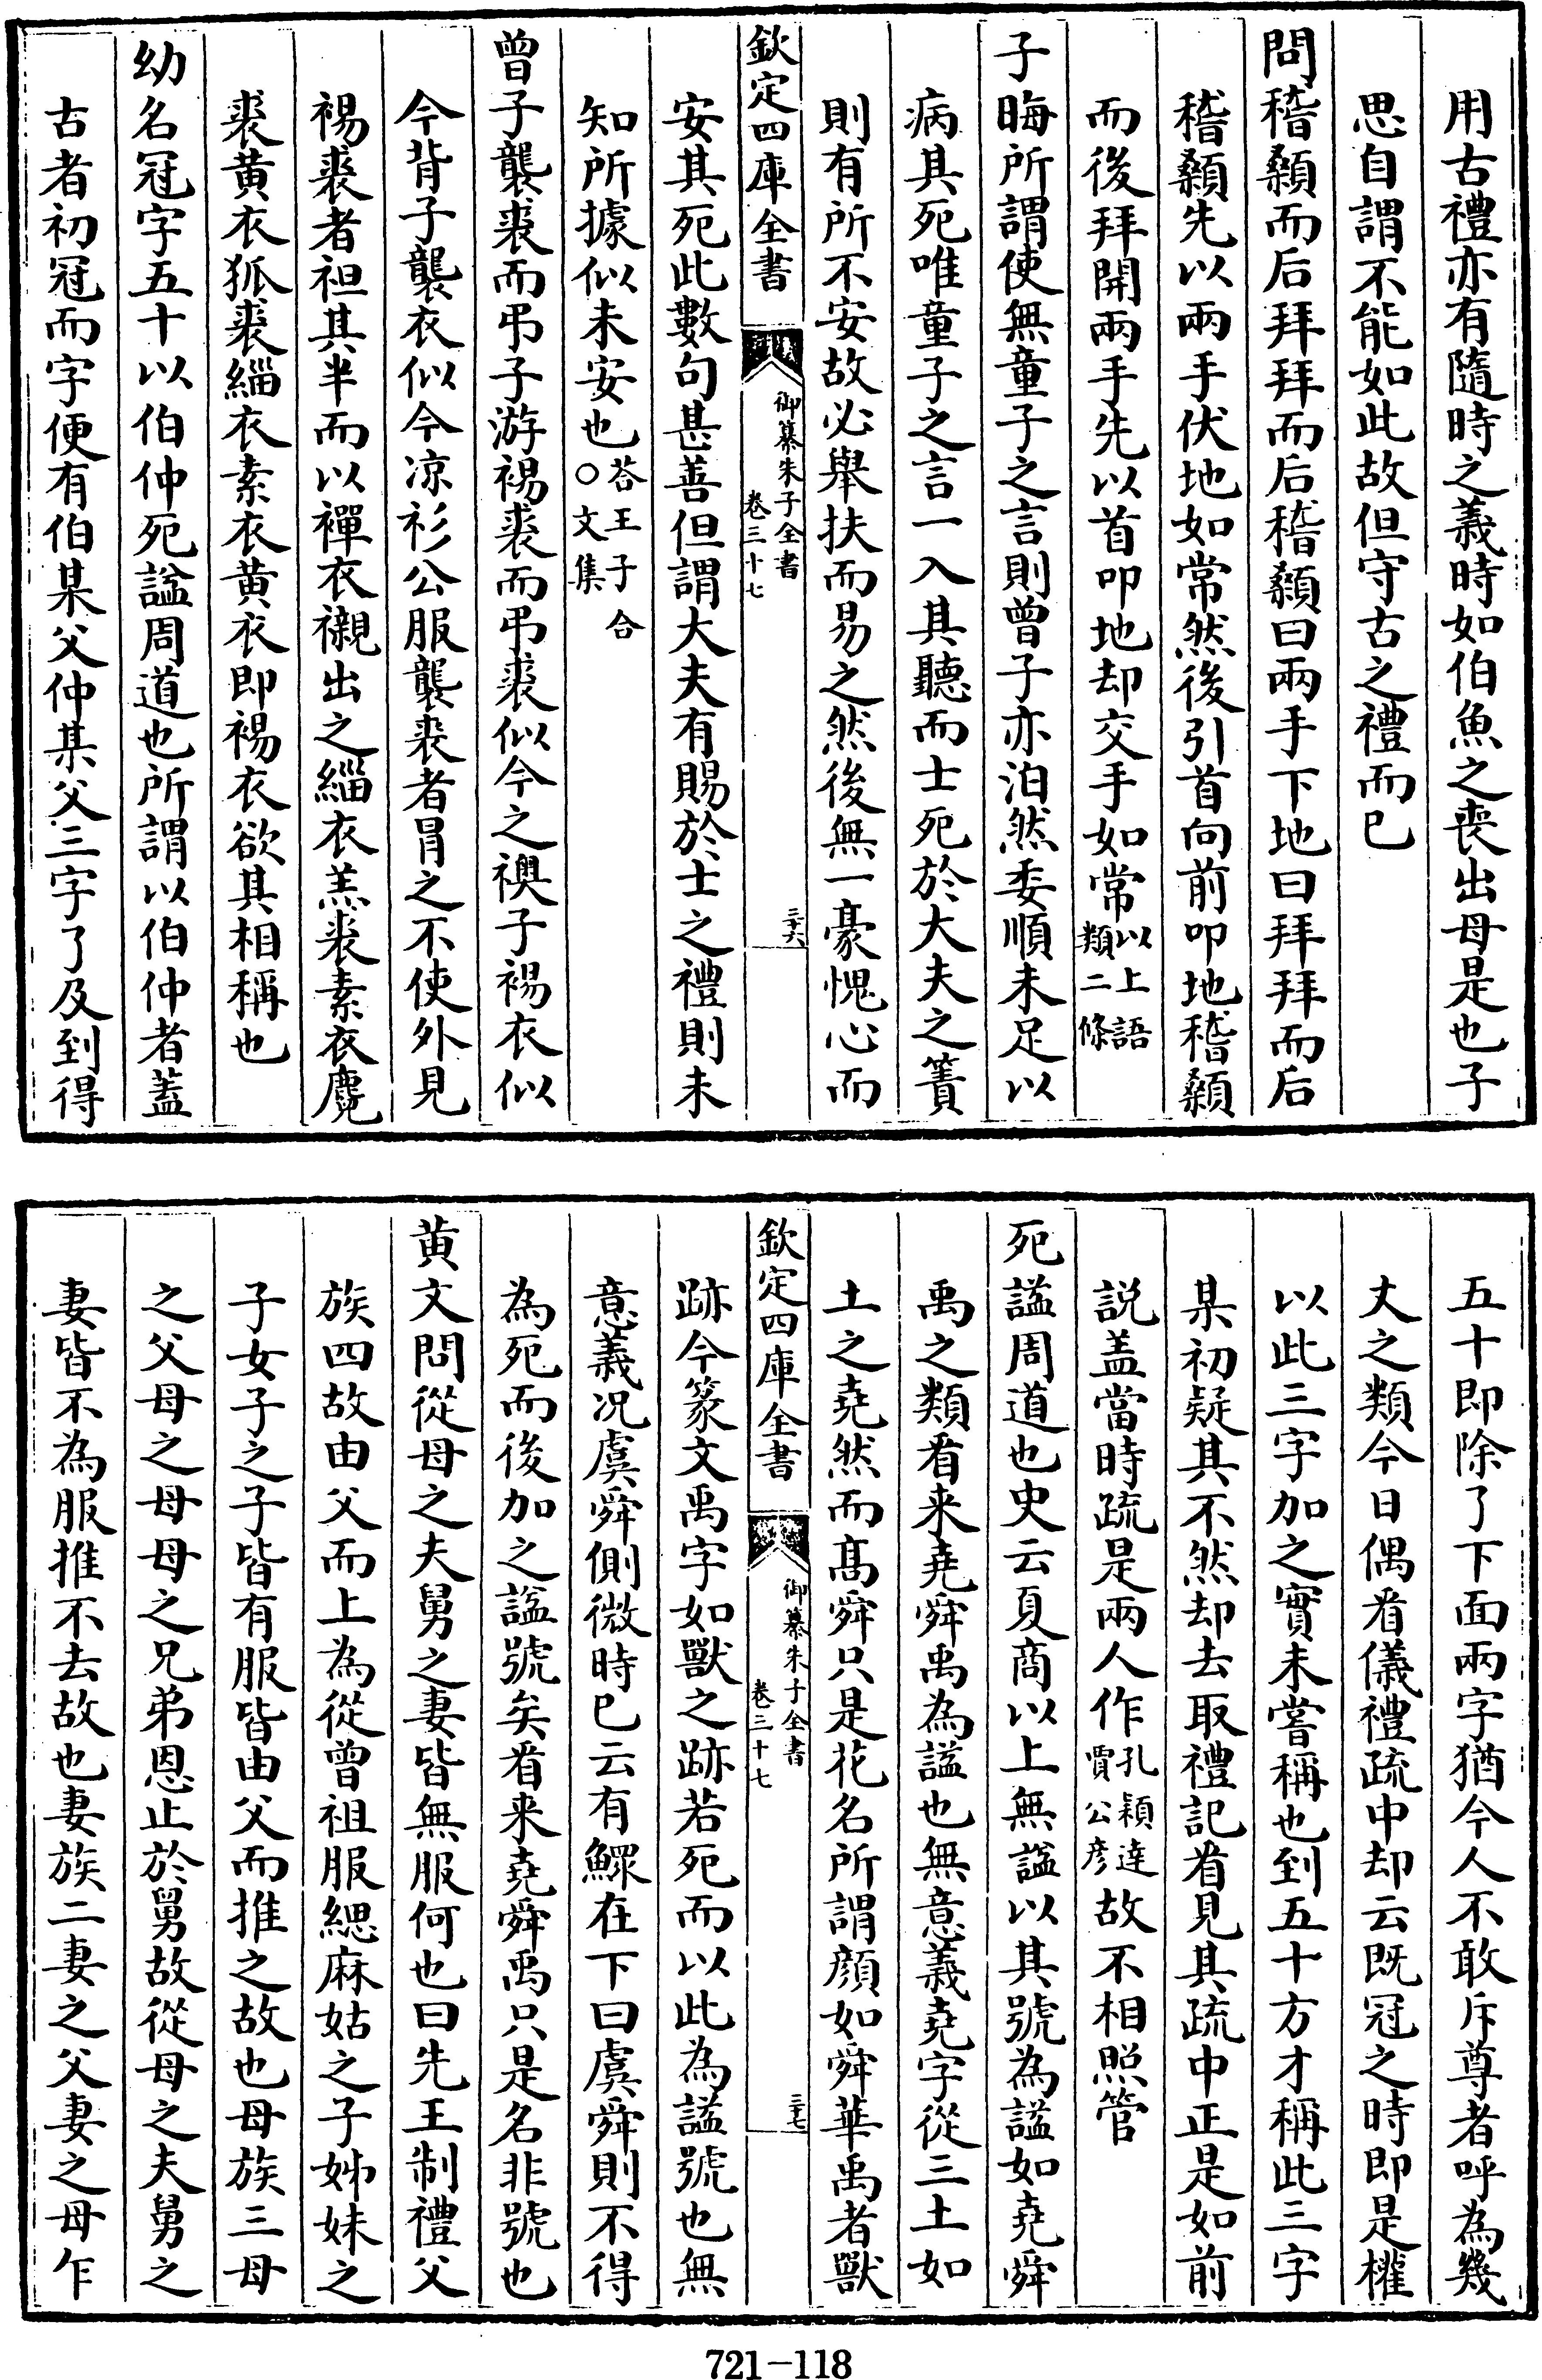 用古禮亦有隨時之義時如伯魚之喪出母是也子
思自謂不能如此故但守古之禮而已
問稽顙而后拜拜而后稽顙曰兩手下地曰拜拜而后
稽顙先以兩手伏地如常然後引首向前叩地稽顙
而後拜開兩手先以首叩地却交手如常以上語類二條
子晦所謂使無童子之言則曾子亦泊然委順未足以
病其死唯童子之言一入其聽而士死於大夫之簀
則有所不安故必舉扶而易之然後無一豪愧心而
欽定四庫全書 御纂朱子全書 卷三十七 三十六
安其死此數句甚善但謂大夫有賜於士之禮則未
知所據似未安也答王子合○文集
曾子襲裘而弔子游裼裘而弔裘似今之襖子裼衣似
今背子襲衣似今凉衫公服襲裘者冐之不使外見
裼裘者袒其半而以襌衣襯出之緇衣羔裘素衣麑
裘黄衣狐裘緇衣素衣黄衣即裼衣欲其相稱也
幼名冠字五十以伯仲死諡周道也所謂以伯仲者蓋
古者初冠而字便有伯某父仲某父三字了及到得
五十即除了下面兩字猶今人不敢斥尊者呼為幾
丈之類今日偶看儀禮疏中却云既冠之時即是權
以此三字加之實未嘗稱也到五十方才稱此三字
某初疑其不然却去取禮記看見其疏中正是如前
説盖當時疏是兩人作孔穎逹賈公彦故不相照管
死諡周道也史云夏商以上無諡以其號為諡如堯舜
禹之類看来堯舜禹為諡也無意義堯字從三土如
土之堯然而髙舜只是花名所謂顔如舜華禹者獸
欽定四庫全書 御纂朱子全書 卷三十七 三十七
跡今篆文禹字如獸之跡若死而以此為諡號也無
意義况虞舜側微時已云有鰥在下曰虞舜則不得
為死而後加之諡號矣看来堯舜禹只是名非號也
黄文問從母之夫舅之妻皆無服何也曰先王制禮父
族四故由父而上為從曾祖服緦麻姑之子姊妹之
子女子之子皆有服皆由父而推之故也母族三母
之父母之母母之兄弟恩止於舅故從母之夫舅之
妻皆不為服推不去故也妻族二妻之父妻之母乍
721-118